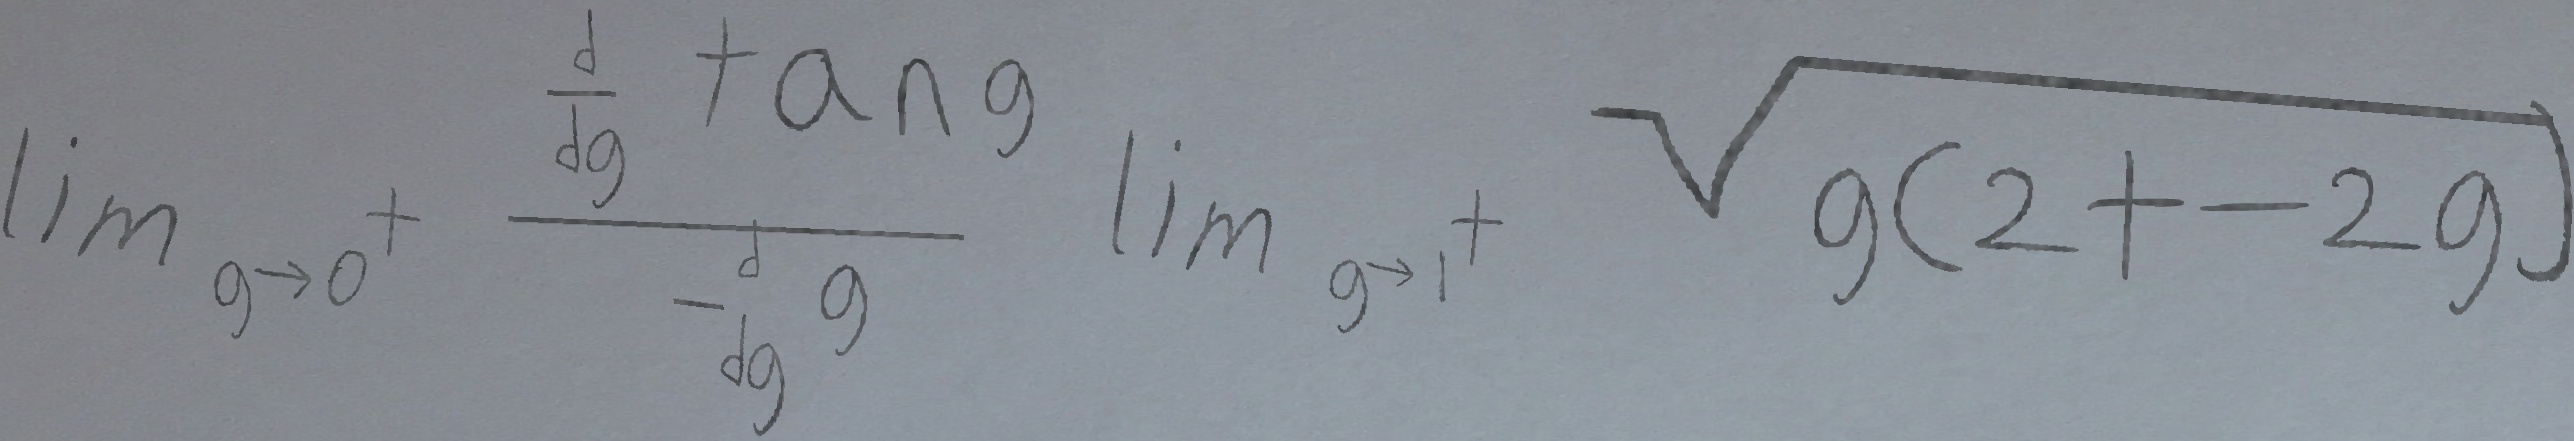 \lim_{g \to 0^+} \frac{\frac{d}{dg} \tan g}{\frac{d}{dg} g} \lim_{g \to 1^+} \sqrt{g(2+-2g)}